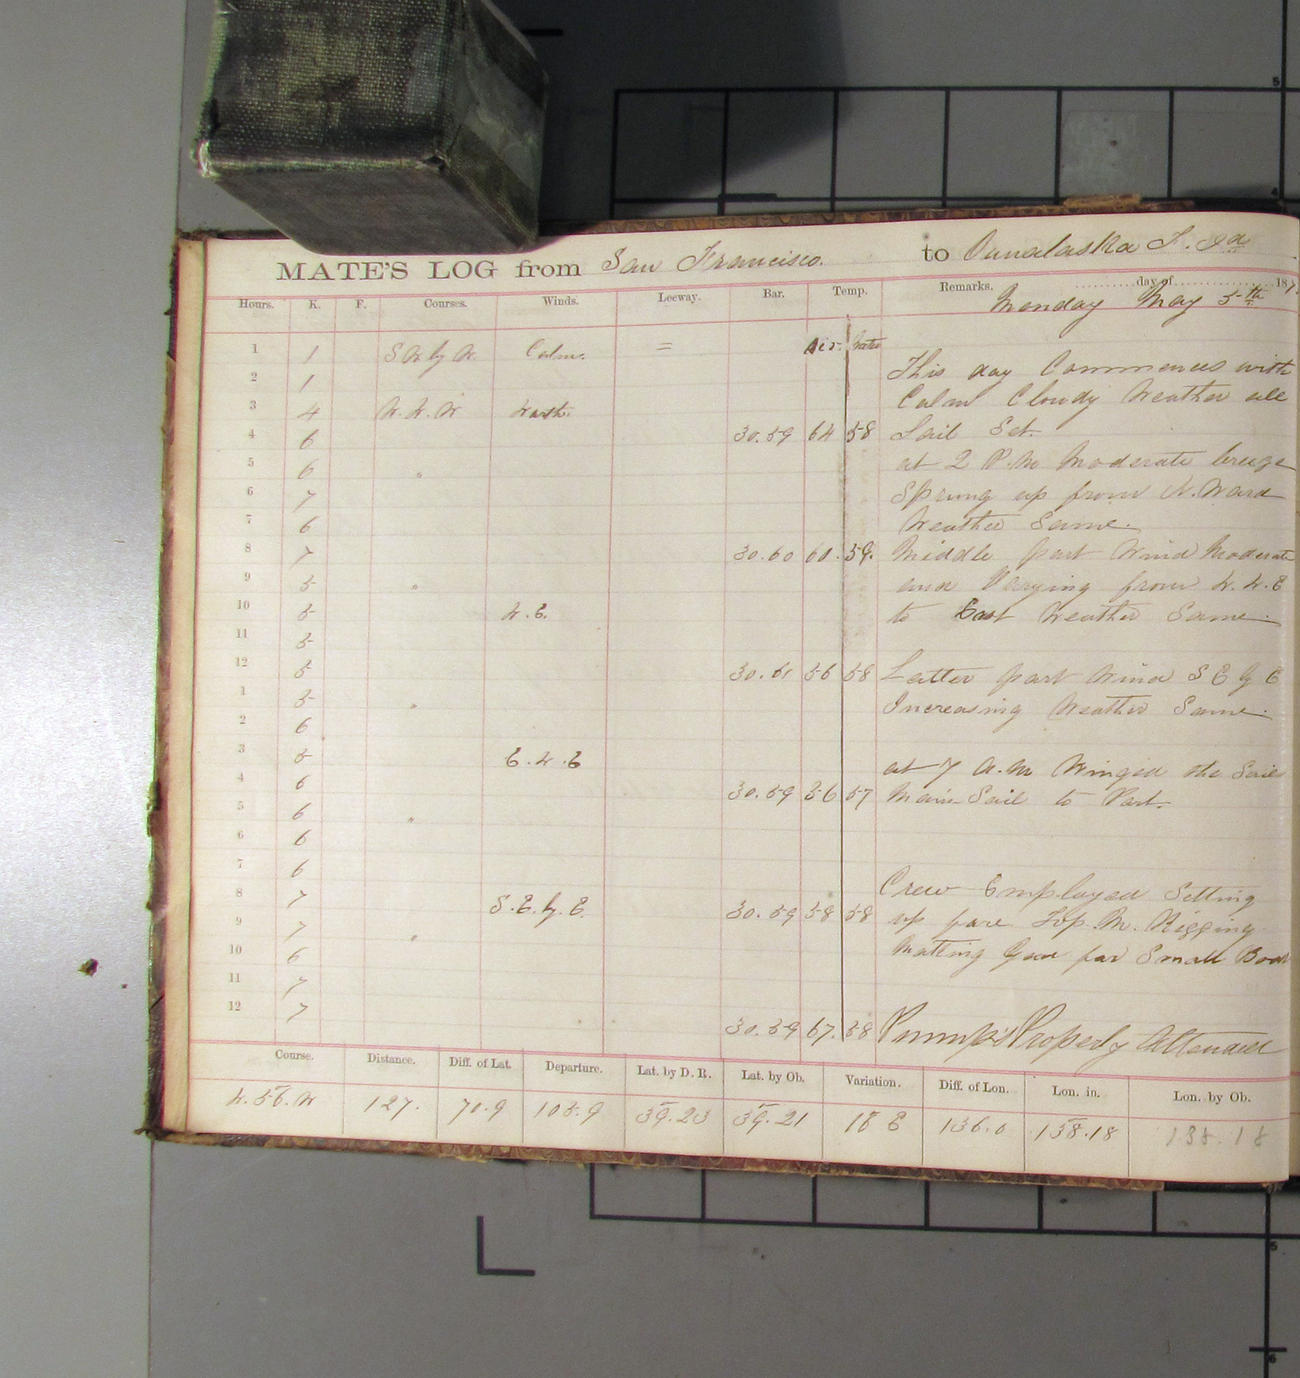 MATE'S LOG from San Francisco. to Ounalaska
Hours. K. F. Courses. Winds. Leeway. Bar. Temp. Remarks. day of 187
Monday May 5th
Air. Water
1 1 S W by W Calm. =
This day Commences with
2 1
Calm Cloudy Weather all
3 4 W. N. W North.
4 6 30.59 64 58 Sail Set.
5 6 "
at 2 P.M Moderate breeze
6 7 Sprung up from N. Ward
7 6 Weather Same.
8 7 30.60 60. 59. Middle part Wind Moderate
9 5 " and Varying from N. N. E
10 5 N. E. to East Weather Same.
11 5
12 5 30.61 56 58 Latter part Wind S E by E
1 5 " Increasing Weather Same.
2 6
3 5 E. N. E
at 7 A.M Winged the
4 6 30.59 56 57 Main Sail to Port.
5 6 "
6 6
7 6
8 7 S. E. by. E. 30.59 58 58 Crew Employed Setting
9 7 " up fore Top. M. Rigging
10 6 Matting Gear for Small Boat
11 7
12 7 30.59 67. 58 Pumps Properly Attended
Course. Distance. Diff. of Lat. Departure. Lat. by D. R. Lat. by Ob. Variation. Diff. of Lon. Lon. in. Lon. by Ob.
N. 56. W 127. 70.9 105.9 39.23 39.21 18 E 136.0 138.18 138.18
5
4
5
6